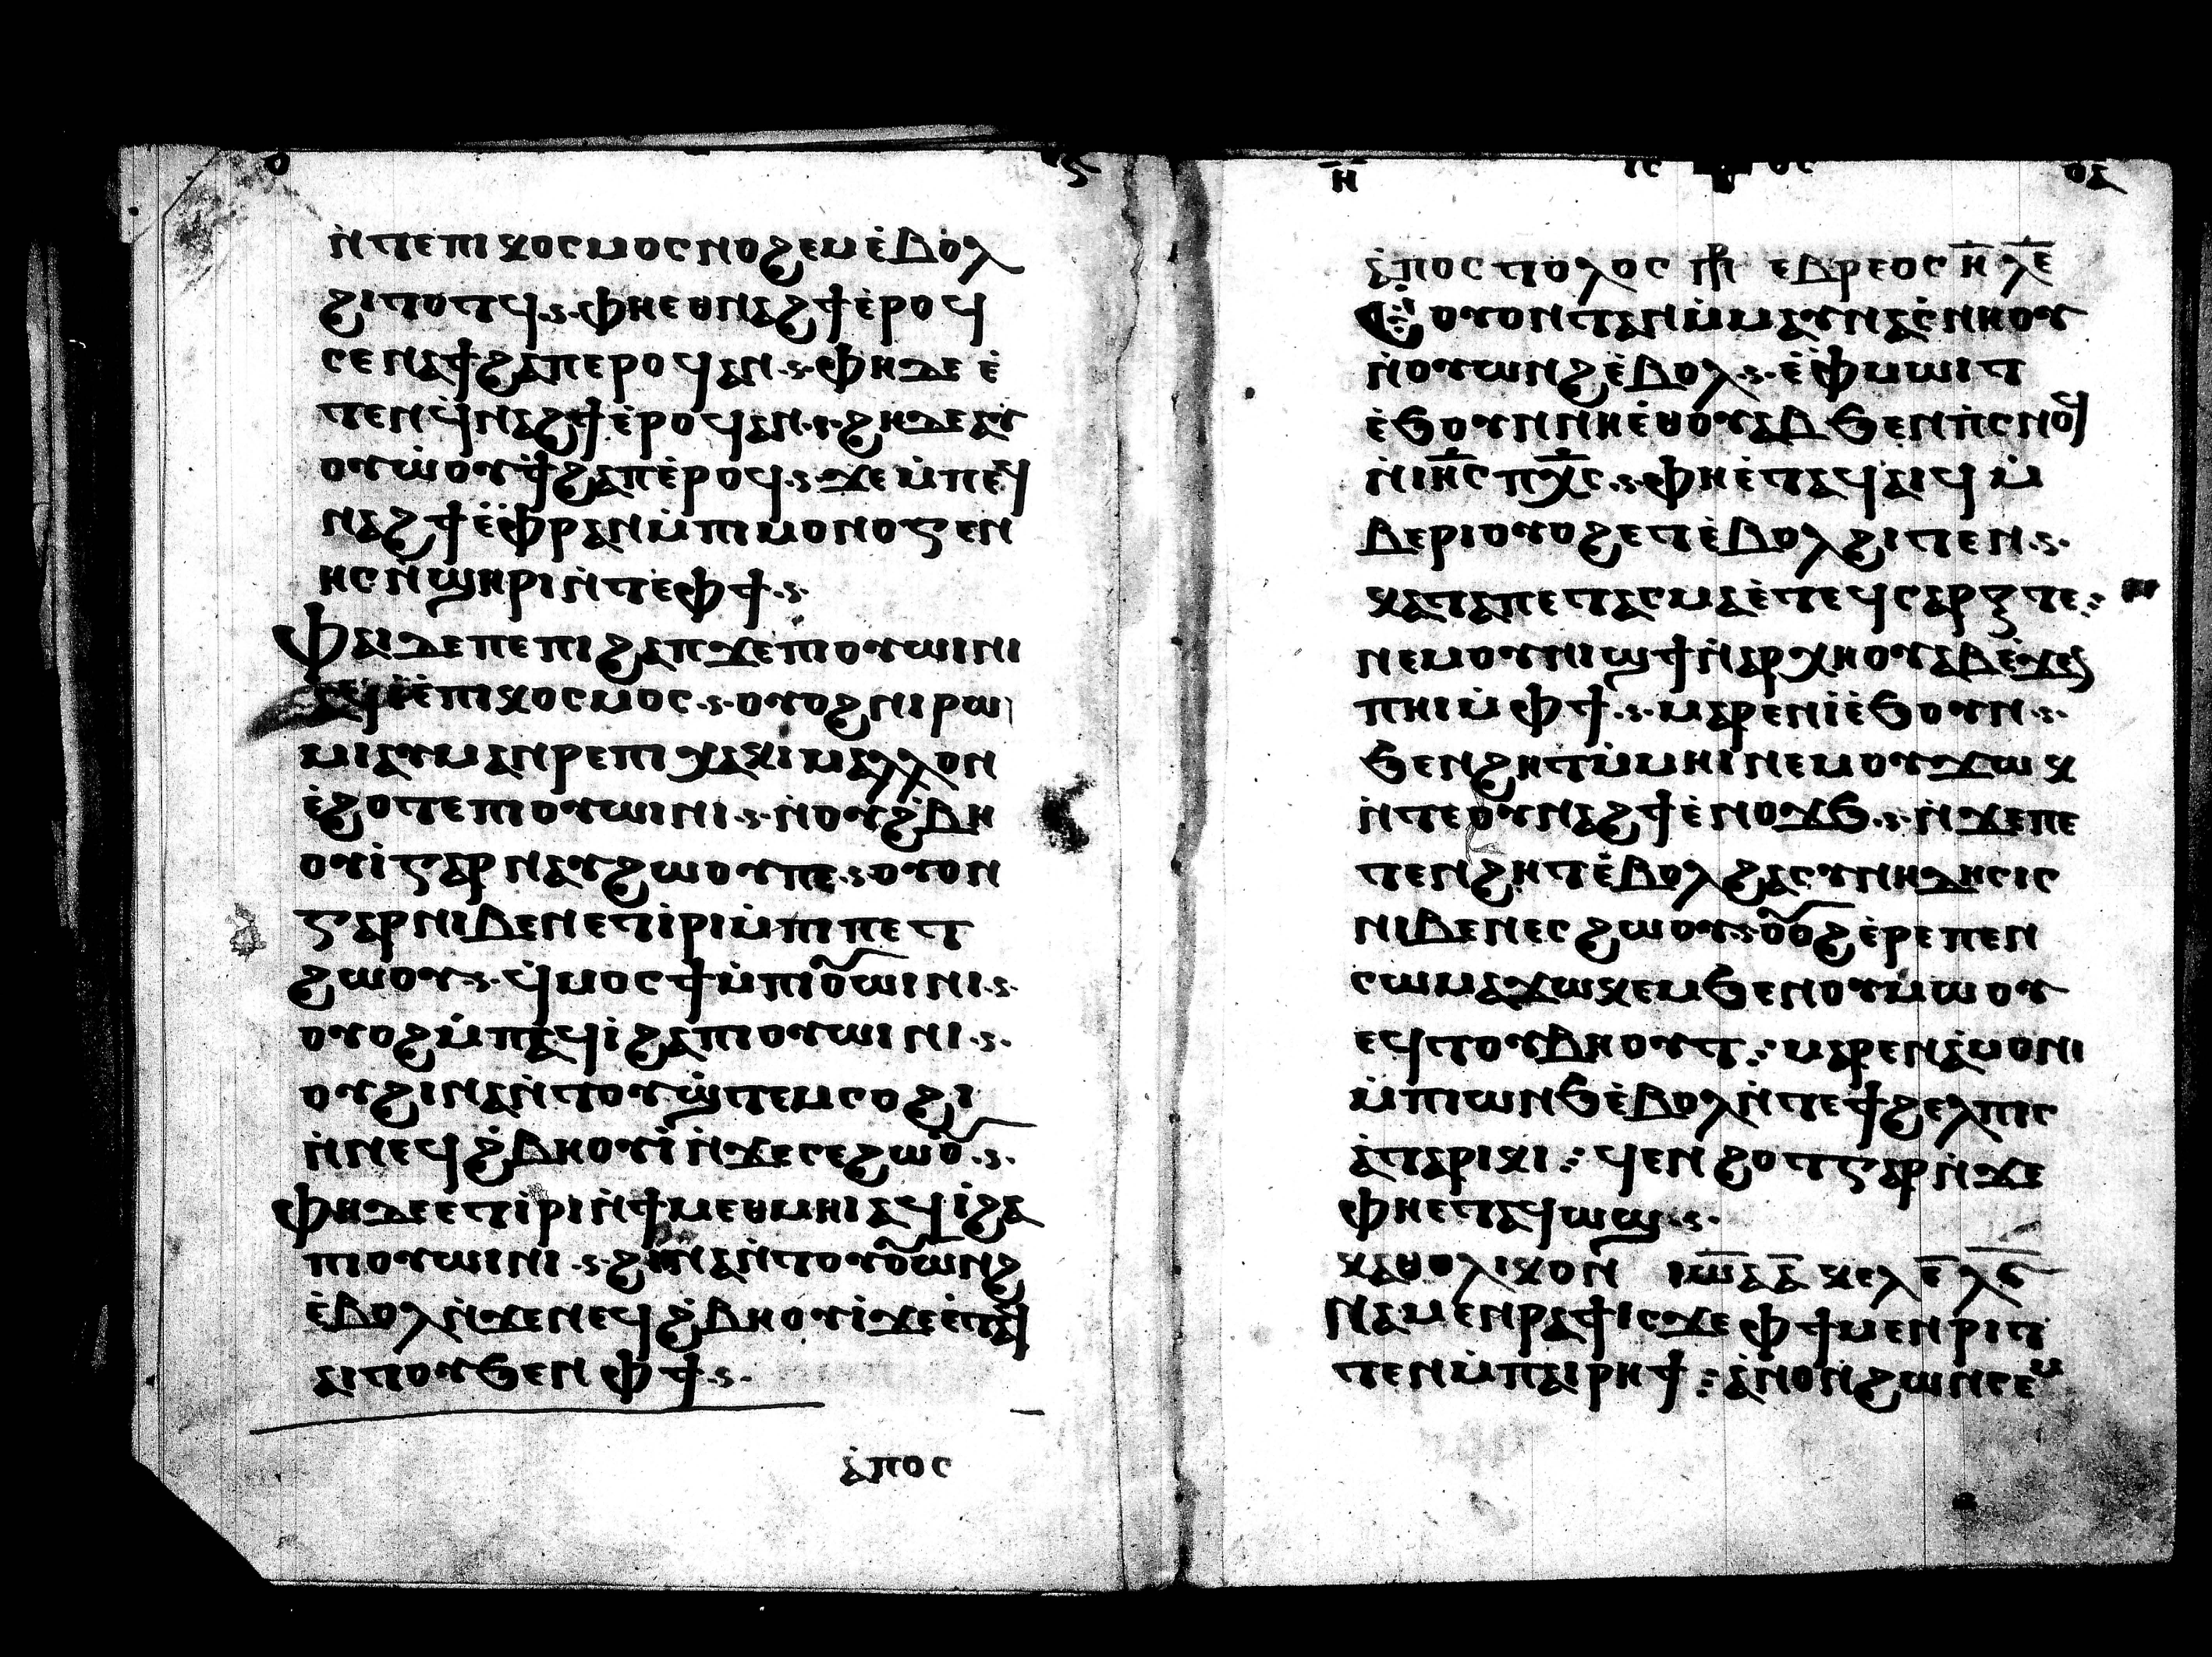 ⲛ̇ⲧⲉⲡⲓⲕⲟⲥⲙⲟⲥⲛⲟϩⲉⲙⲉ̇ⲃⲟⲗ
ϩⲓⲧⲟⲧϥ·ⲫⲏⲉⲑⲛⲁϩϯⲉ̇ⲣⲟϥ
ⲥⲉⲛⲁϯϩⲁⲡⲉⲣⲟϥⲁⲛ·ⲫⲏⲇⲉ ⲉ̇
ⲧⲉⲛϥ̇ⲛⲁϩϯⲉ̇ⲣⲟϥⲁⲛ·ϩⲏⲇⲉⲁⲩ
ⲟⲩⲱ̇ⲟⲩϯ̇ϩⲁⲡⲉ̇ⲣⲟϥ·ϫⲉⲙ̇ⲡⲉϥ
ⲛⲁϩϯⲉ̇ⲫ̇ⲣⲁⲛⲙ̇ⲡⲓⲙⲟⲛⲟⲅⲉⲛ
ⲏⲥⲛ̇ϣⲏⲣⲓⲛ̇ⲧⲉ̇ⲫϯ·
ⲫⲁⲓⲇⲉⲡⲉⲡⲓϩⲁⲡϫⲉⲡⲓⲟⲩⲱⲓⲛⲓ
ⲁϥⲓ̇ⲉ̇ⲡⲓⲕⲟⲥⲙⲟⲥ·ⲟⲩⲟϩⲛⲓⲣⲱ
ⲙⲓⲁⲩⲙⲁⲛⲣⲉⲡⲓⲭⲁⲕⲓⲙⲁⲗⲗⲟⲛ
ⲉ̇ϩⲟⲧⲉⲡⲓⲟⲩⲱⲓⲛⲓ·ⲛ̇ⲟⲩϩ̇ⲃⲏ
ⲟⲩⲓ̇ⲅⲁⲣⲛⲁⲩϩⲱⲟⲩⲡⲉ·ⲟⲩⲟⲛ
ⲅⲁⲣⲛⲓⲃⲉⲛⲉⲧⲓ̇ⲣⲓⲙ̇ⲡⲓⲡⲉⲧ
ϩⲱⲟⲩ·ϥ̇ⲙⲟⲥϯⲙ̇ⲡⲓⲟ̅ⲱⲓⲛⲓ·
ⲟⲩⲟϩⲙ̇ⲡⲁϥⲓ̇ϩⲁⲡⲓⲟⲩⲱⲓⲛⲓ·
ⲟⲩϩⲓⲛⲁⲛ̇ⲧⲟⲩϣ̇ⲧⲉⲙⲥⲟϩⲓ
ⲛ̇ⲛⲉϥϩ̇ⲃⲏⲟⲩⲓ̇ⲛ̇ϫⲉⲥⲉϩⲱⲟ̅·
ⲫⲏⲇⲉⲉⲧⲓ̇ⲣⲓⲛ̇ϯⲙⲉⲑⲙⲏⲓⲁϥⲓ̇ϩⲁ
ⲡⲓⲟⲩⲱⲓⲛⲓ·ϩⲓⲛⲁⲛ̇ⲧⲟⲩⲟ̅ⲱⲛϩ
ⲉ̇ⲃⲟⲗⲛ̇ϫⲉⲛⲉϥϩ̇ⲃⲏⲟⲩⲓ̇ϫⲉⲉ̇ⲧⲁϥ
ⲁⲓⲧⲟⲩϧⲉⲛⲫϯ·
ⲁ̇ⲡⲟⲥ
ⲏ̅ ⲓⲥ ⲟⲁ
ⲁ̇ⲡⲟⲥⲧⲟⲗⲟⲥ ⲡⲣ ⲉⲃⲣⲉⲟⲥ ⲏ̅ ⲗⲉ̅
ⲉ̇ⲟⲩⲟⲛⲧⲁⲛⲙ̇ⲙⲁⲩⲛⲁⲥ̇ⲛⲏⲟⲩ
ⲛ̇ⲟⲩⲱⲛϩⲉ̇ⲃⲟⲗ·ⲉ̇ⲫ̇ⲙⲱⲓⲧ
ⲉ̇ϧⲟⲩⲛⲛⲏⲉ̇ⲑⲟⲩⲁⲃϧⲉⲛⲡ̇ⲥⲛⲟϥ
ⲛ̇ⲓⲏ̅ⲥⲡⲭ̅ⲥ·ⲫⲏⲉ̇ⲧⲁϥⲁⲓϥⲙ̇
ⲃⲉⲣⲓⲟⲩⲟϩⲉⲧⲉ̇ⲃⲟⲗϩⲓⲧⲉⲛ·
ⲕⲁⲧⲁⲡⲉⲧⲁⲥⲙⲁⲉ̇ⲧⲉϥⲥⲁⲣⲝⲧⲉ⁝
ⲛⲉⲙⲟⲩⲛⲓϣϯⲛ̇ⲁⲣⲭⲏⲟⲩⲁⲃⲉ̇ϫⲉⲛ
ⲡⲏⲓⲙ̇ⲫϯ·ⲙⲁⲣⲉⲛⲓ̇ⲉ̇ϧⲟⲩⲛ·
ϧⲉⲛϩⲏⲧⲙ̇ⲙⲏⲓⲛⲉⲙⲟⲩϫⲱⲕ
ⲛ̇ⲧⲉⲟⲩⲛⲁϩϯⲉ̇ⲛⲟϫϧ·ⲛ̇ϫⲉⲡⲉ
ⲧⲉⲛϩⲏⲧⲉ̇ⲃⲟⲗϩⲁⲥⲩⲛⲏⲇⲏⲥⲓⲥ
ⲛⲓⲃⲉⲛⲉⲥϩⲱⲟⲩ·ⲟ̅ⲟϩⲉ̇ⲣⲉⲡⲉⲛ
ⲥⲱⲙⲁϫⲱⲕⲉⲙϧⲉⲛⲟⲩⲙⲱⲟⲩ
ⲉϥⲧⲟⲩⲃⲏⲟⲩⲧ⁝ⲙⲁⲣⲉⲛⲁ̇ⲙⲟⲛⲓ
ⲙ̇ⲡⲓⲱⲛϧⲉ̇ⲃⲟⲗⲛ̇ⲧⲉϯϩⲉⲗⲡⲓⲥ
ⲁ̇ⲧⲁⲣⲓⲕⲓ⁝ϥⲉⲛϩⲟⲧⲅⲁⲣⲛ̇ϫⲉ
ⲫⲏⲉⲧⲁϥⲱϣ·
ⲕⲁⲑⲟⲗⲓⲕⲟⲛ ⲓⲱ̅ⲁ ⲁ̅ ⲕⲉⲗⲉ̅ ⲗϭ̅
ⲛⲁⲙⲉⲛⲣⲁϯⲓⲥϫⲉⲫϯⲙⲉⲛⲣⲓⲧ
ⲧⲉⲛⲙ̇ⲡⲁⲓⲣⲏϯ⁝ⲁ̇ⲛⲟⲛϩⲱⲛⲥⲉⲙ